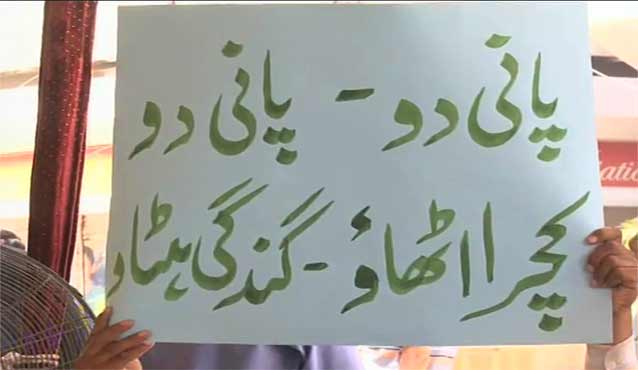 پانی دو - پانی دو
کچرا اٹھاؤ - گندگی ہٹاو